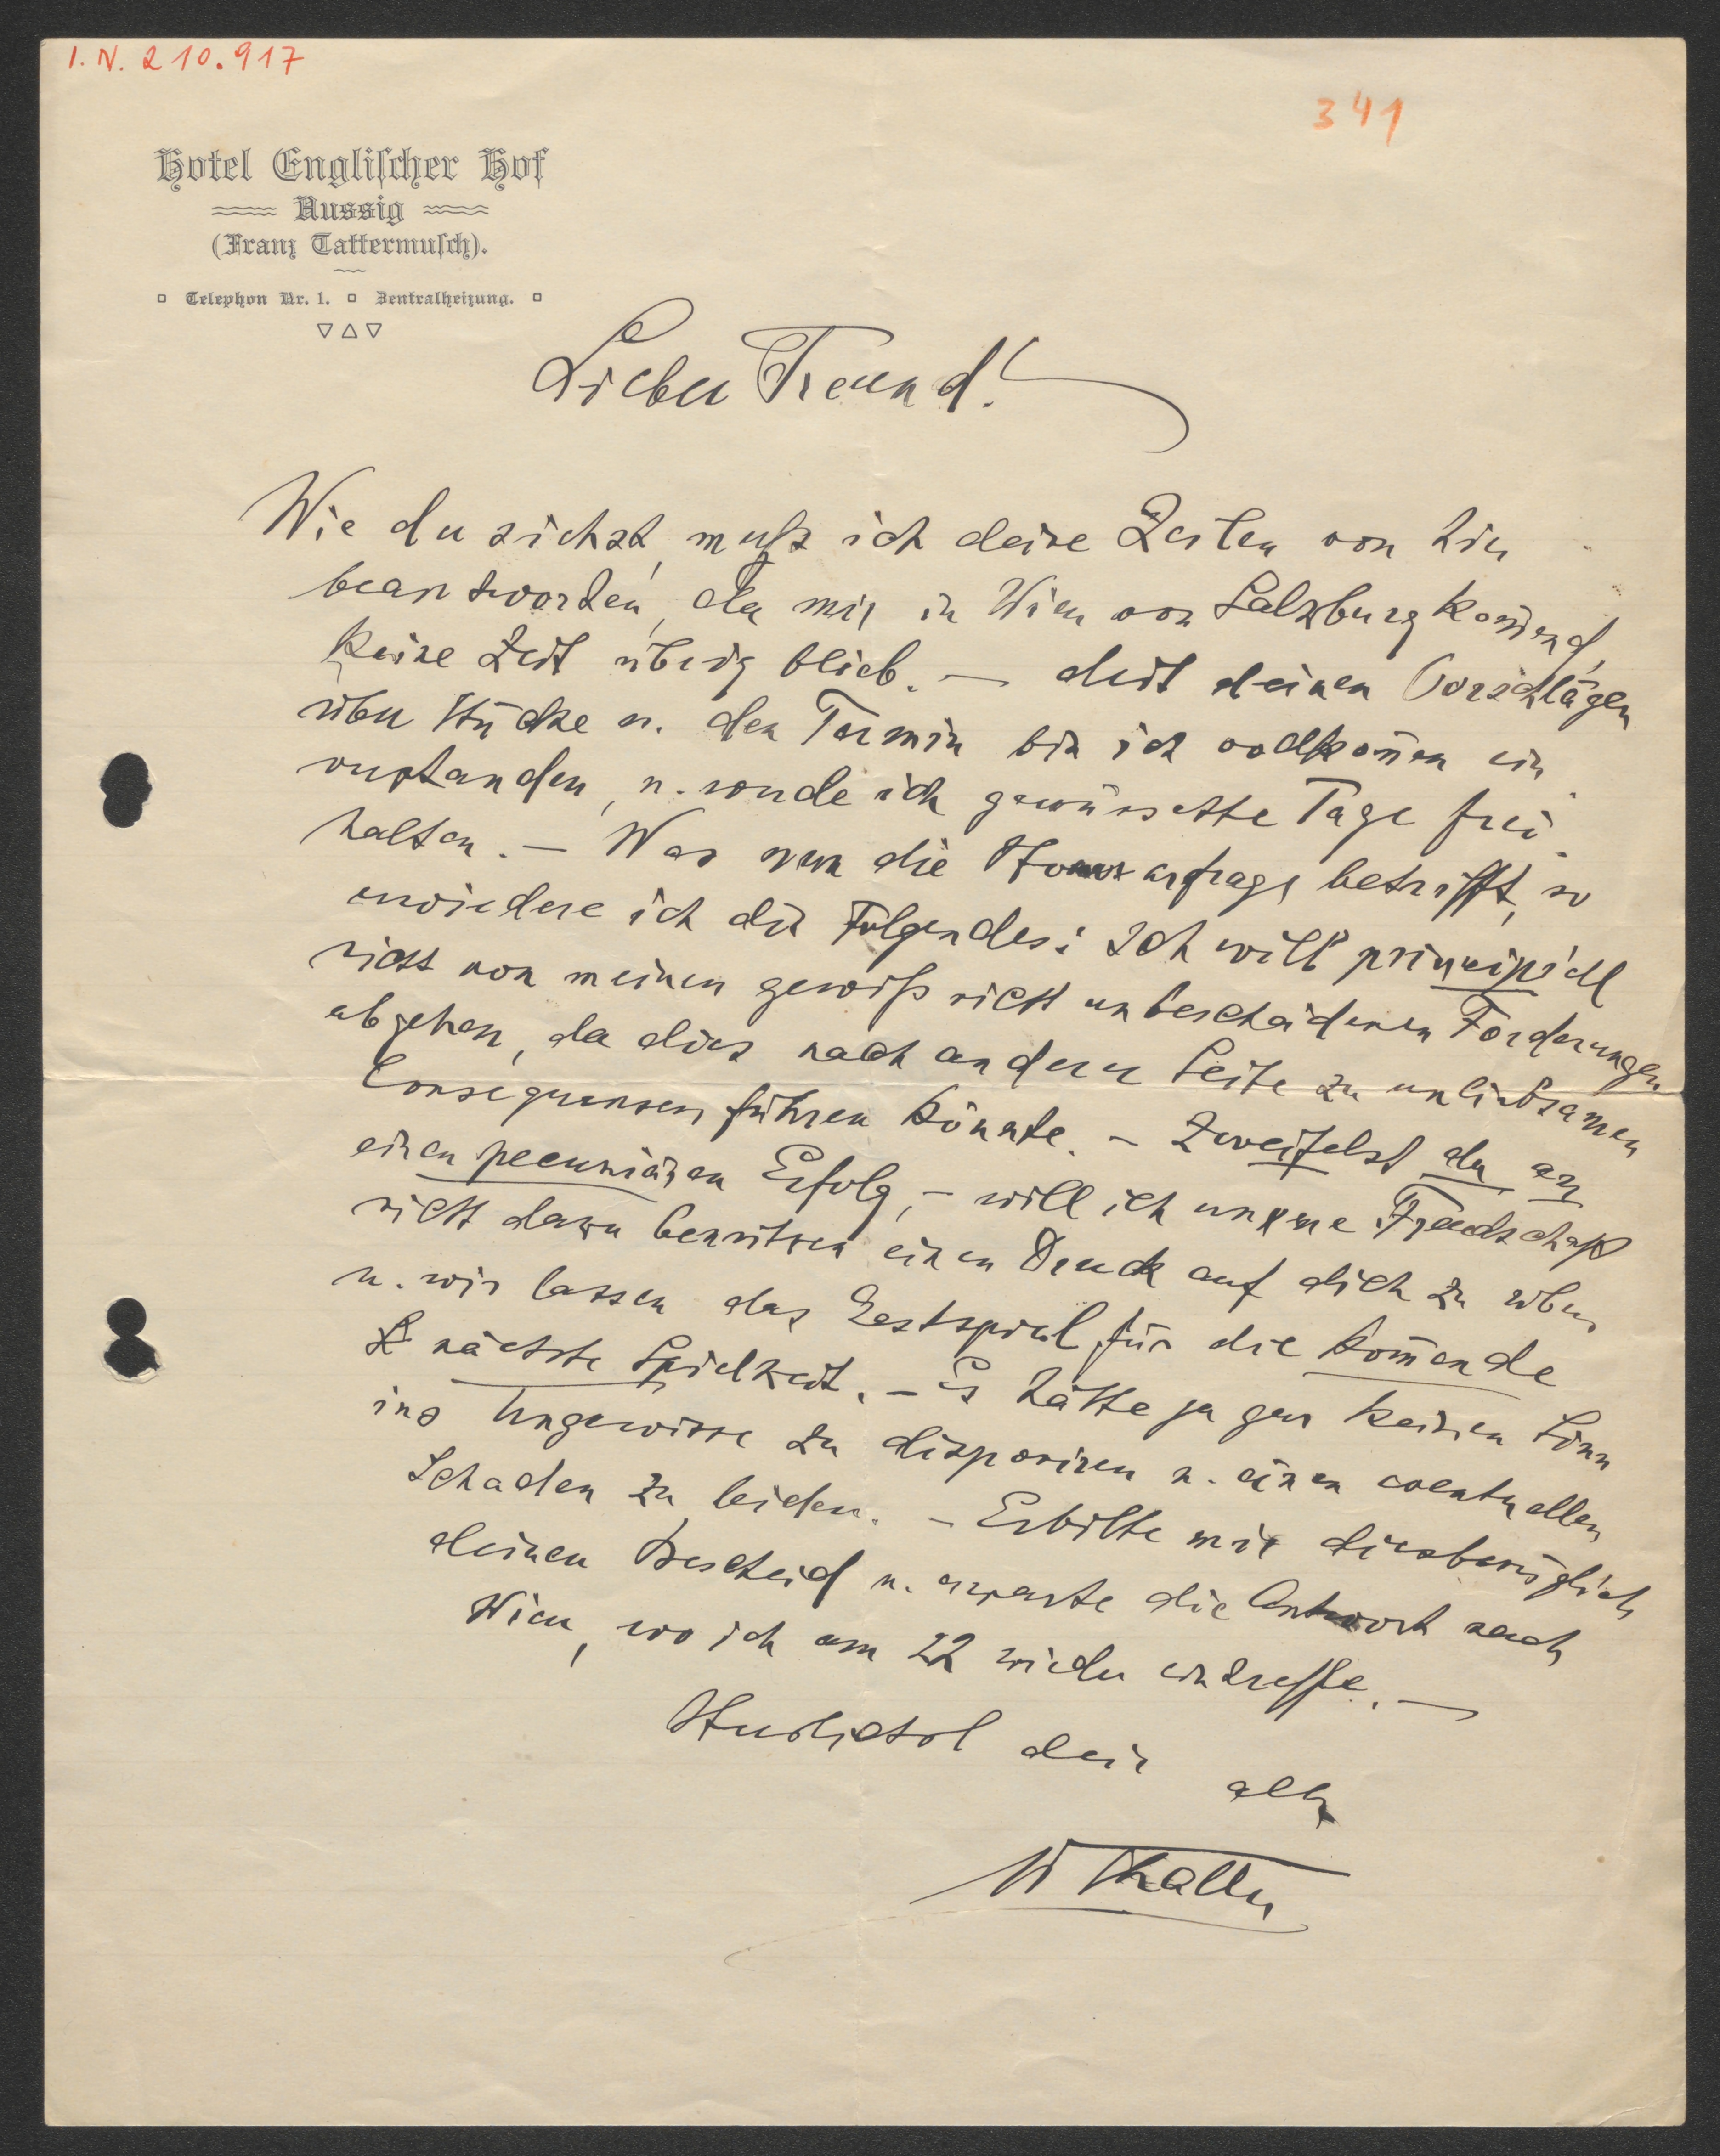 I. N. 210.917
341
Hotel Engliſcher Hof
Aussig
(Franz Tattermuſch).
Telephon Nr. 1. Zentralheizung.
Lieber Freund!
Wie du siehst, muß ich deine Zeilen von hier
beantworten, da mir in Wien von Salzburg kom̄end,
keine Zeit übrig blieb. — Mit deinen Vorschlägen
über Stücke u. den Termin bin ich vollkom̄en ein
verstanden, u. werde ich gewünschte Tage frei
halten. — Was nun die Honorarfrage betrifft, so
erwiedere ich dir Folgendes: Ich will principiell
nicht von meinen gewiß nicht unbescheidenen Forderungen
abgehen, da dies nach anderer Seite zu unliebsamen
Consequenzen führen könnte. – Zweifelst du an
einen pecuniären Erfolg, – will ich unsere Freundschaft
nicht dazu benützen einen Druck auf dich zu üben
u. wir lassen das Gastspiel für die kom̄ende
nächste Spielzeit. – Es hätte ja gar keinen Sinn
ins Ungewisse zu disponiren u. einen eventuellen
Schaden zu leiden. – Erbitte mir diesbezüglich
deinen Bescheid u. erwarte die Antwort nach
Wien, wo ich am 22 wieder eintreffe. —
Herzlichst dein
alter
W Thaller